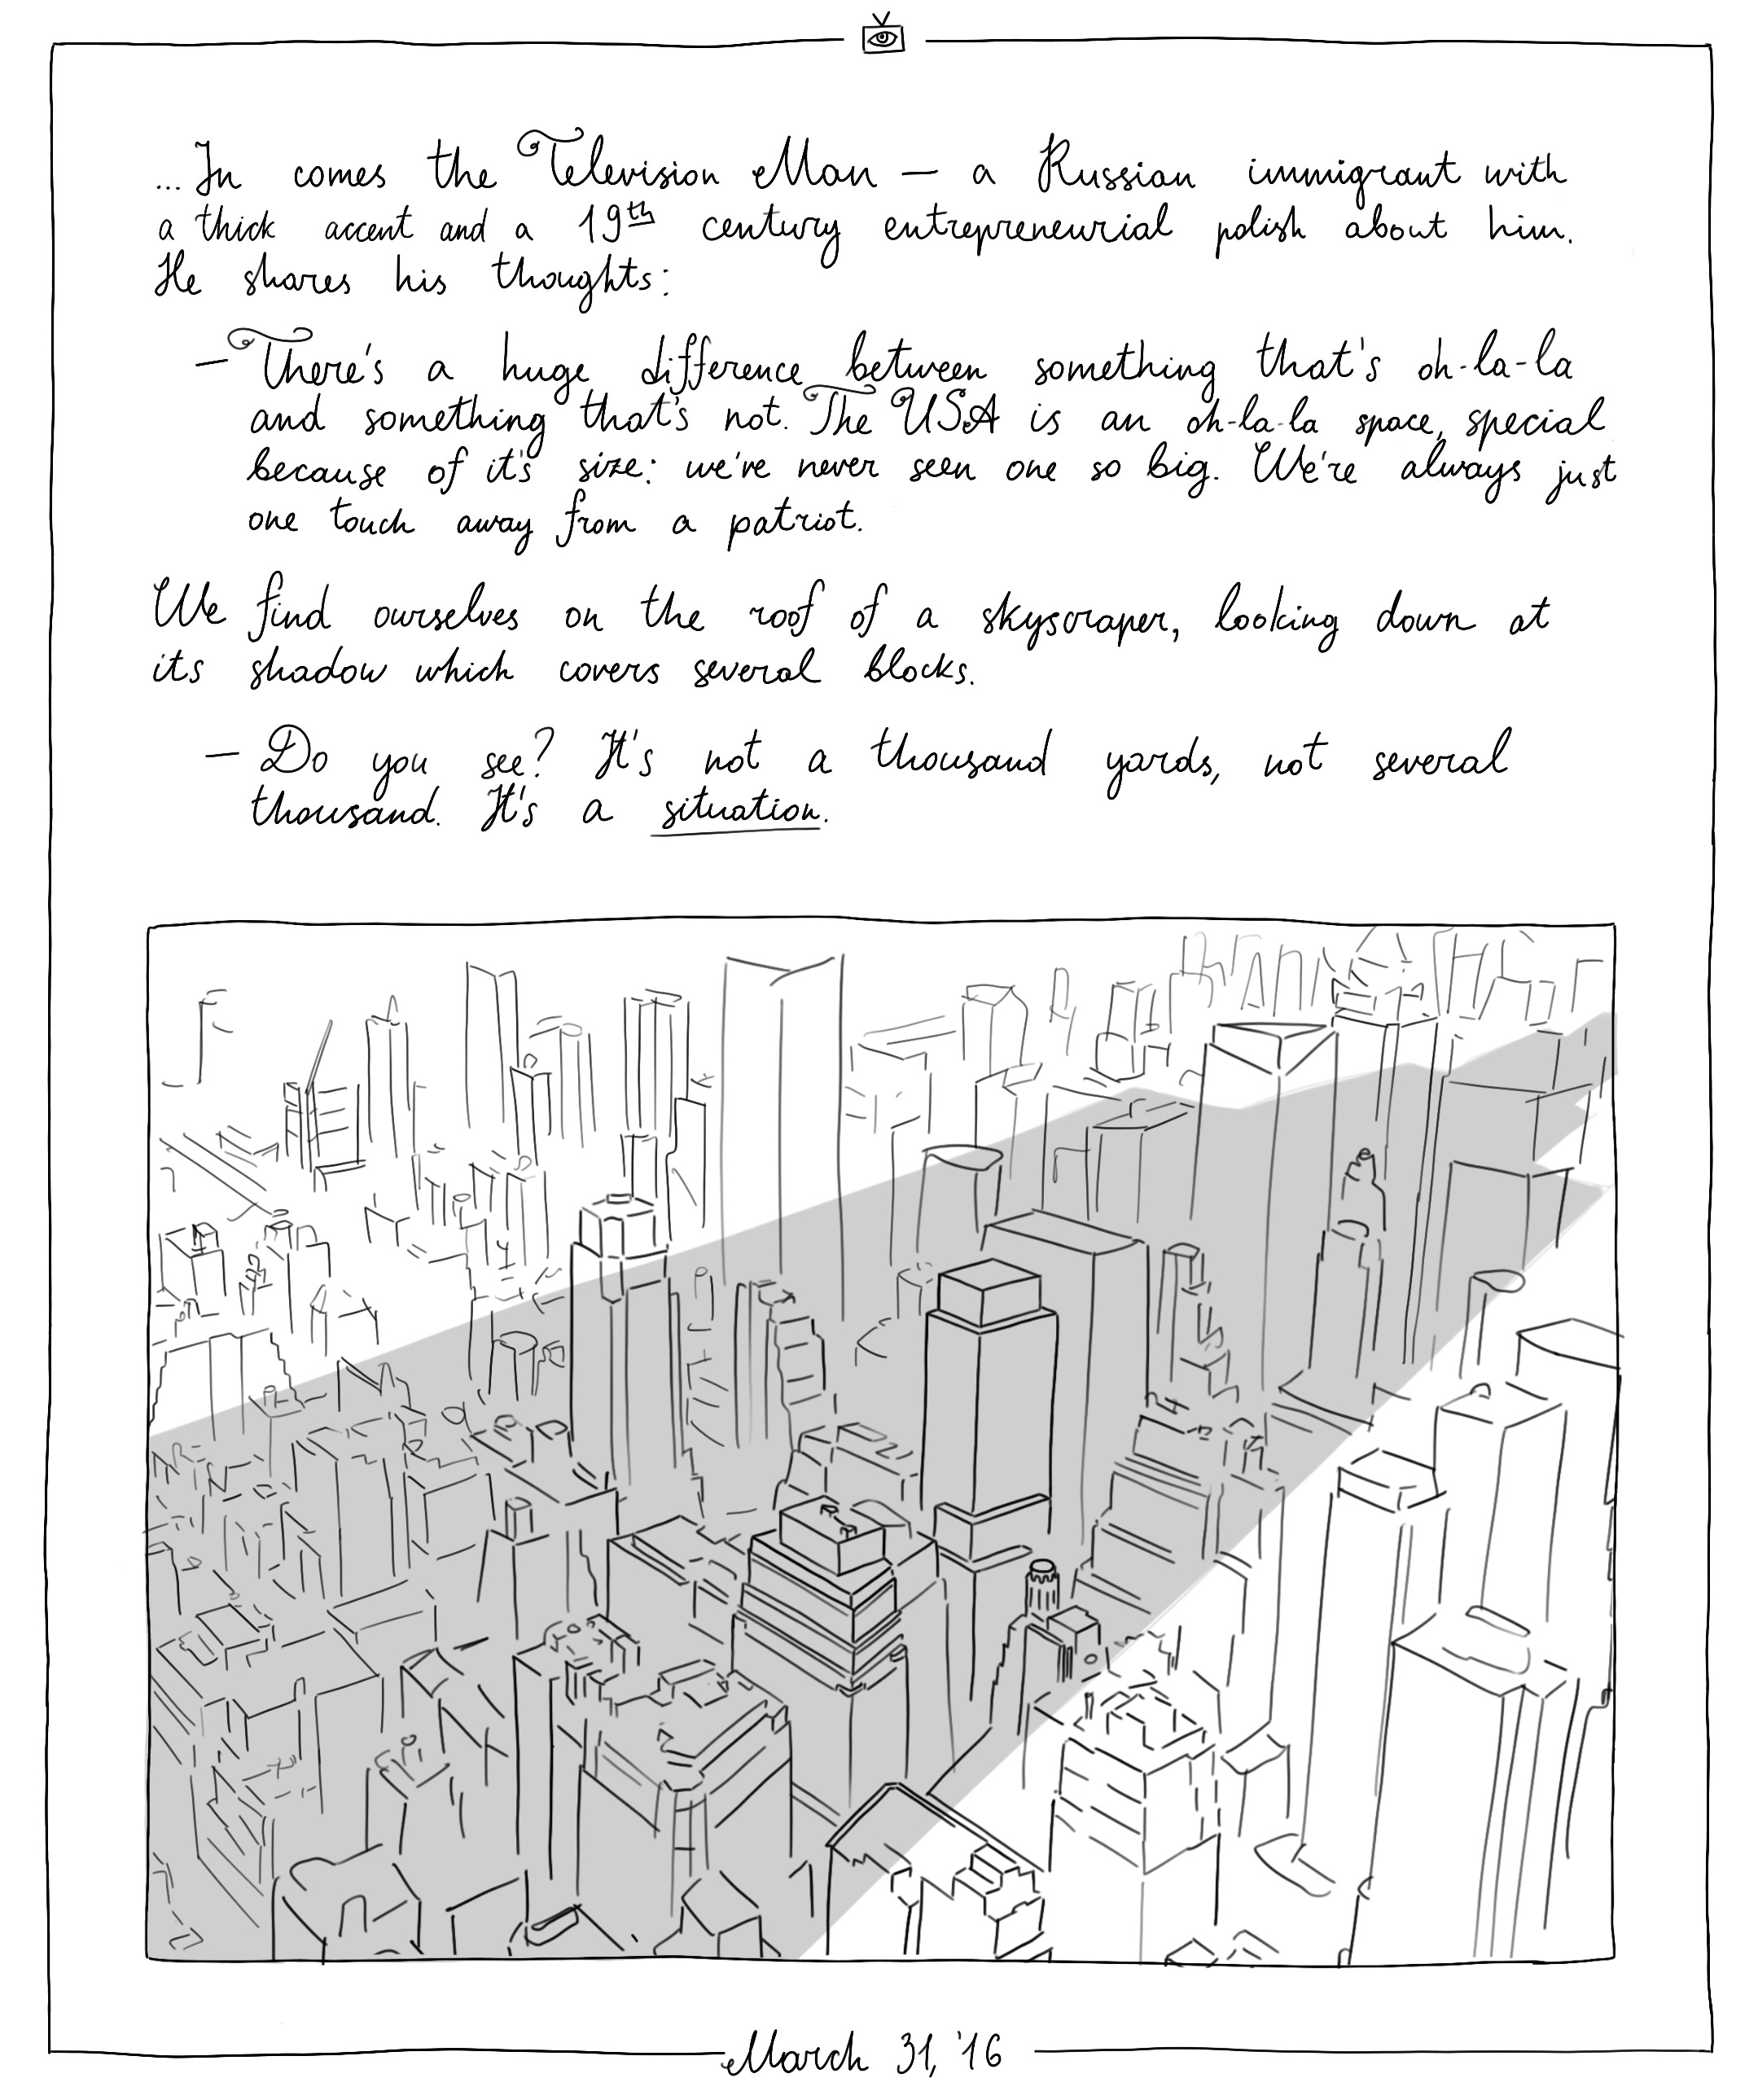 ... In comes the Television Man — a Russian immigrant with
a thick accent and a 19th century entrepreneurial polish about him.
He shares his thoughts:
— There's a huge difference between something that's oh-la-la
and something that's not. The USA is an oh-la-la space, special
because of it's size: we're never seen one so big. We're always just
one touch away from a patriot.
We find ourselves on the roof of a skyscraper, looking down at
its shadow which covers several blocks.
— Do you see? It's not a thousand yards, not several
thousand. It's a situation.
March 31, '16